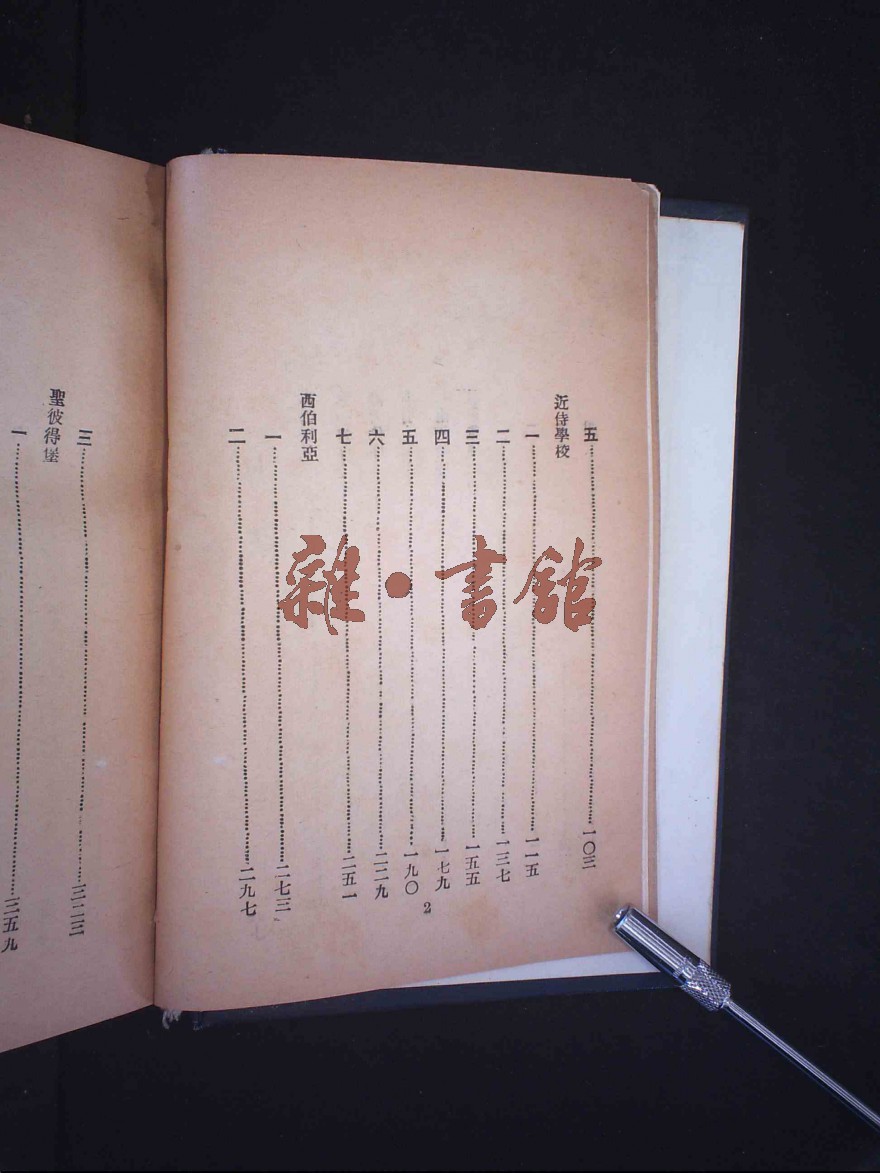 五……一〇三
近侍學校
一……一一五
二……一三七
三……一五五
四……一七九
五……一九〇
六……二二九
七……二五一
西伯利亞
一……二七三
二……二九七
2
三……三二三
聖彼得堡
一……三五九
雜·書館